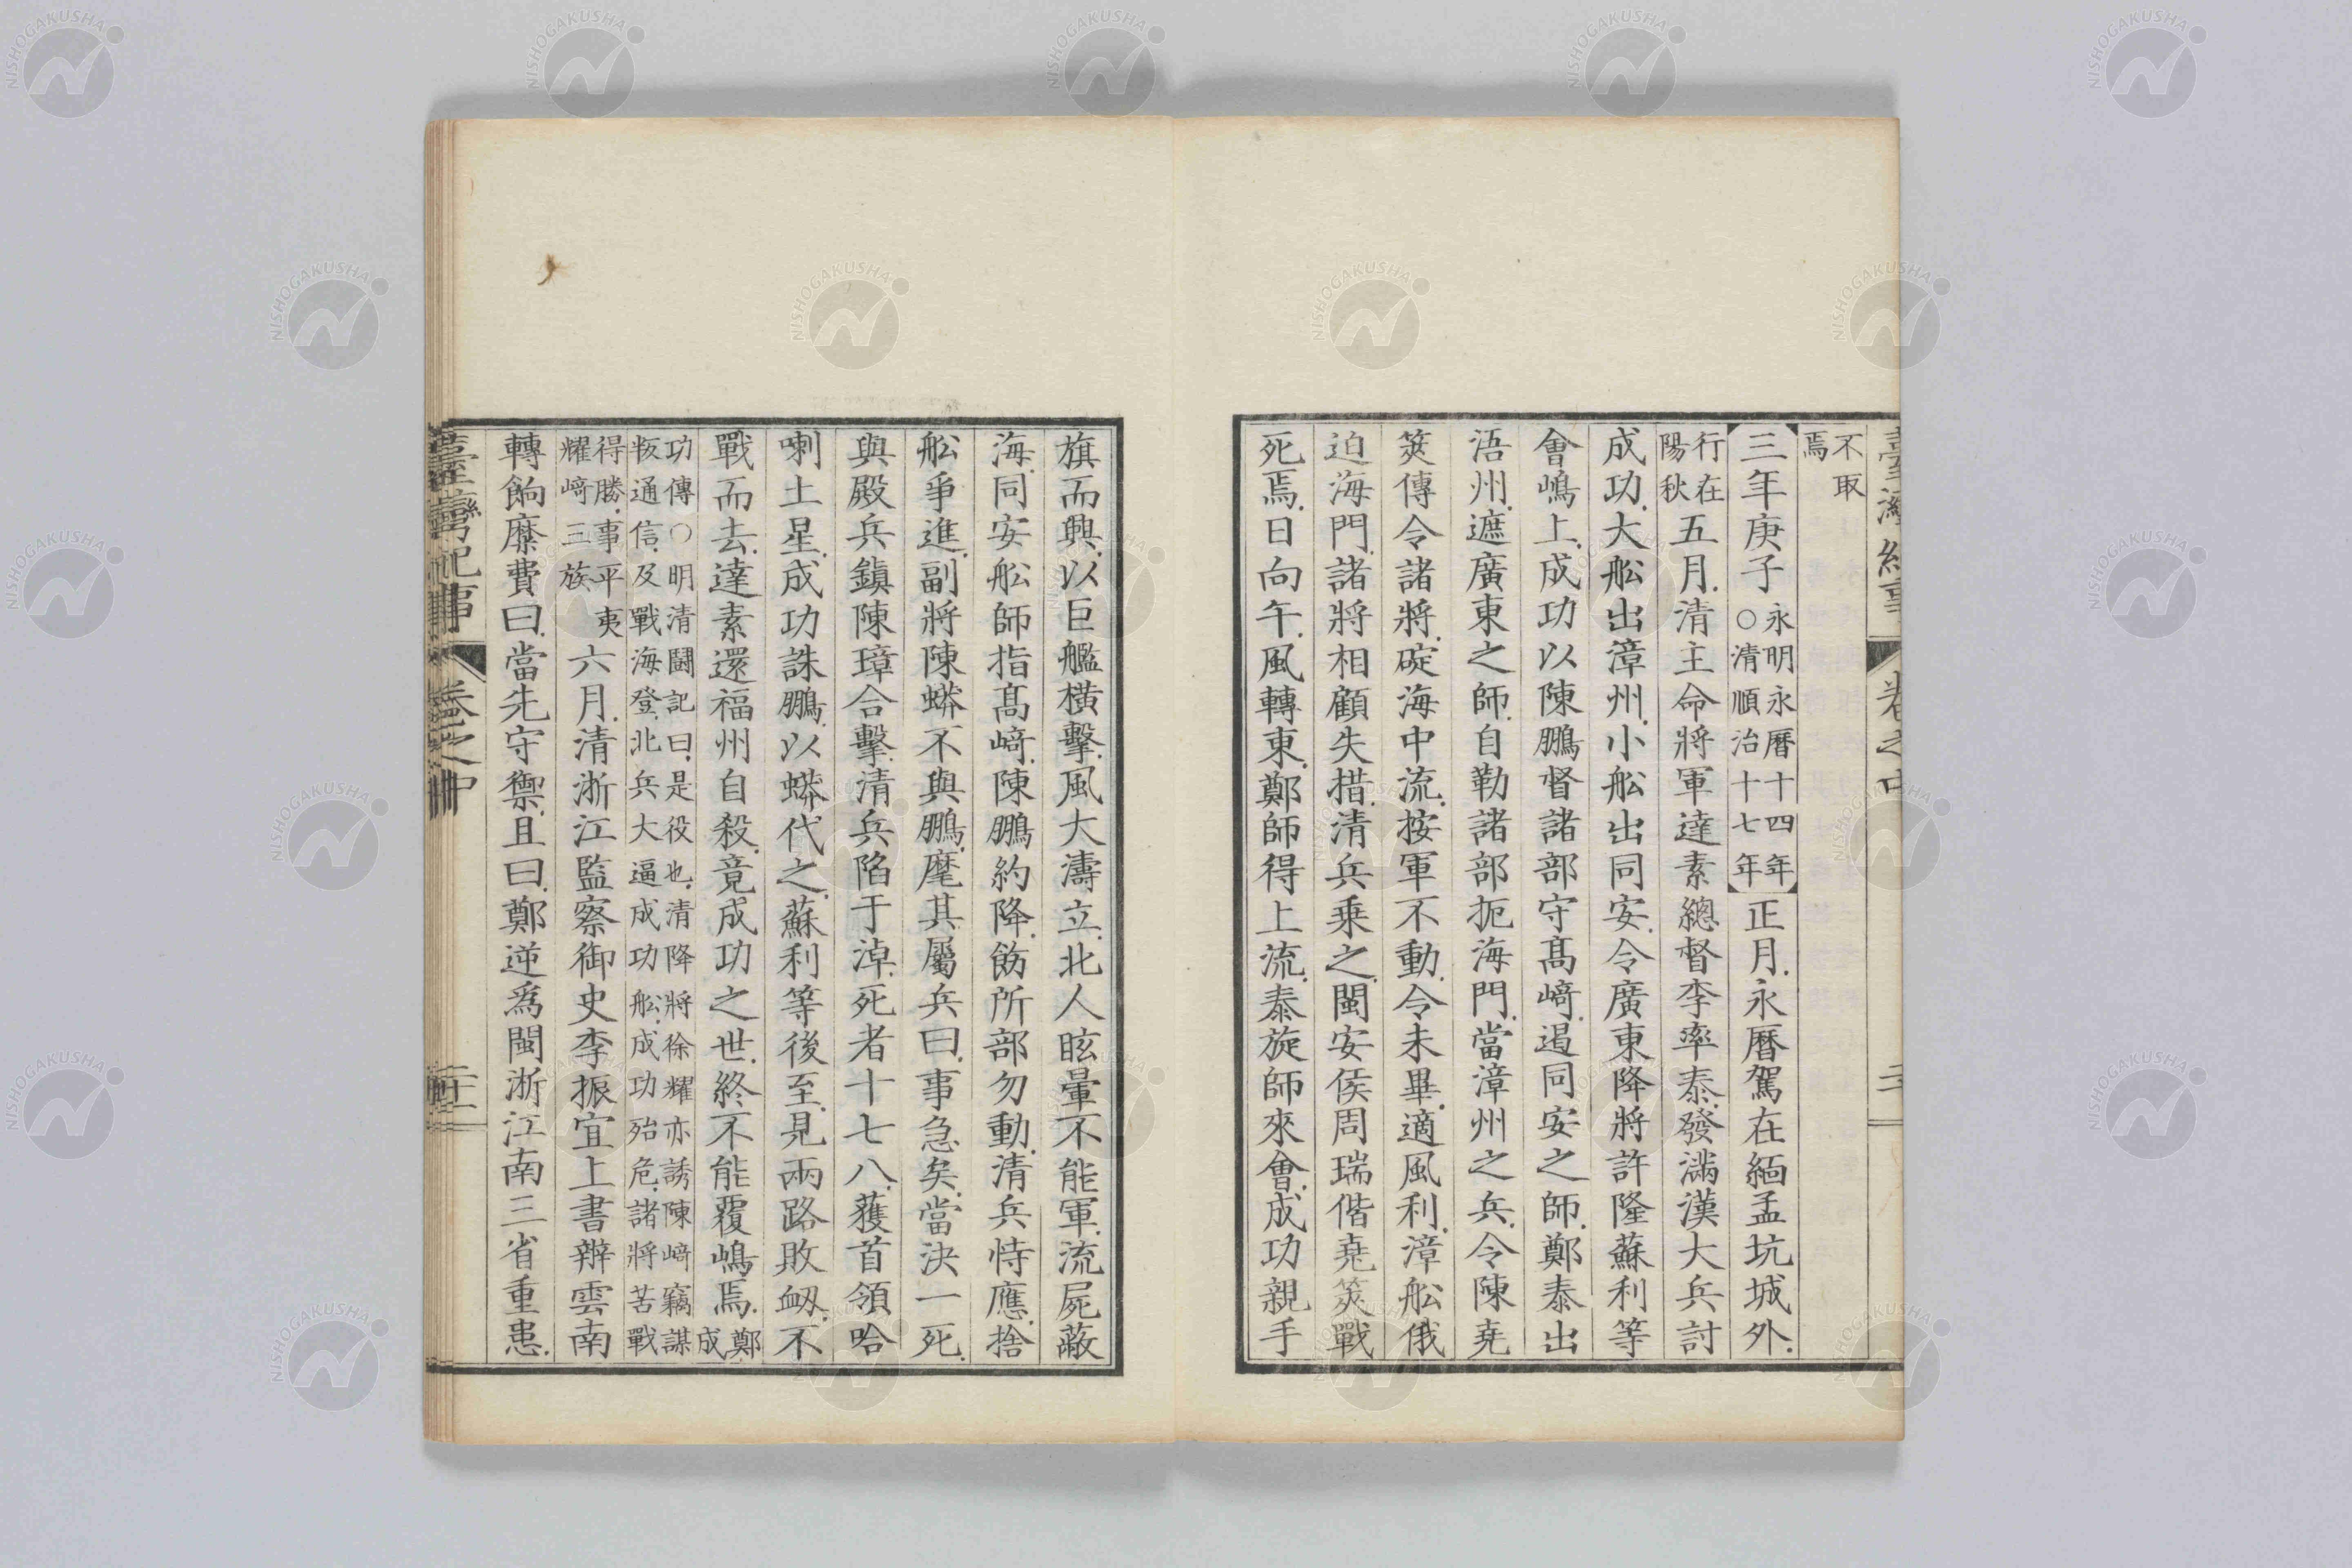 臺灣紀事
卷之中
不取
焉
三年庚子
永明永曆十四年
○清順治十七年
正月永曆駕在緬孟坑城外
行在
陽秋
五月清主命將軍達素總督李率泰發滿漢大兵討
成功大舩出漳州小舩出同安令廣東降將許隆蘇利等
會嶋上成功以陳鵬督諸部守髙﨑遏同安之師鄭泰出
浯州遮廣東之師自勒諸部扼海門當漳州之兵令陳堯
筴傳令諸將碇海中流按軍不動令未畢適風利漳舩俄
迫海門諸將相顧失措清兵乗之閩安侯周瑞偕堯筴戰
死焉日向午風轉東鄭師得上流泰旋師來會成功親手
旗而興以巨艦橫擊風大濤立北人眩暈不能軍流屍蔽
海同安舩師指髙﨑陳鵬約降飭所部勿動清兵恃應捨
舩爭進副將陳蟒不與鵬麾其屬兵曰事急矣當決一死
與殿兵鎮陳璋合擊清兵陷于淖死者十七八獲首領哈
喇土星成功誅鵬以蟒代之蘇利等後至見兩路敗衂不
戰而去達素還福州自殺竟成功之世終不能覆嶋焉
鄭
成
功傳○明清闘記曰是役也清降將徐耀亦誘陳﨑竊謀
叛通信及戰海登北兵大逼成功舩成功殆危諸將苦戰
得勝事平夷
耀﨑三族
六月清浙江監察御史李振宜上書辦雲南
轉餉糜費曰當先守禦且曰鄭逆爲閩浙江南三省重患
臺灣紀事
卷之中